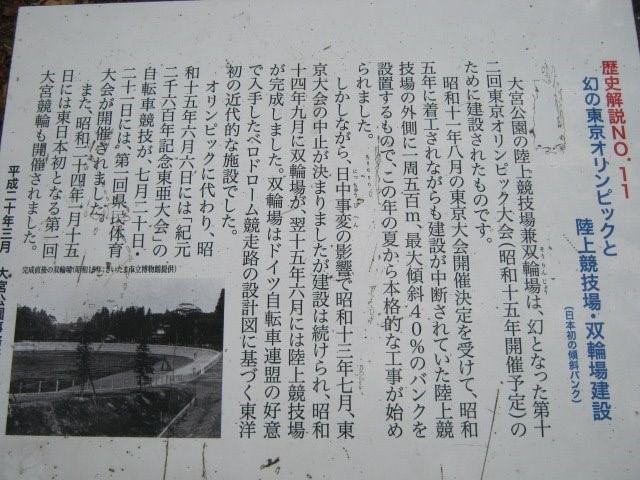 歴史解説NO.11
幻の東京オリンピックと
陸上競技場・双輪場建設
(日本初の傾斜バンク)
大宮公園の陸上競技場兼双輪場は、幻となった第十
二回東京オリンピック大会(昭和十五年開催予定)の
ために建設されたものです。
昭和十一年八月の東京大会開催決定を受けて、昭和
五年に着工されながらも建設が中断されていた陸上競
技場の外側に一周五百m、最大傾斜40%のバンクを
設置するもので、この年の夏から本格的な工事が始め
られました。
しかしながら、日中事変の影響で昭和十三年七月、東
京大会の中止が決まりましたが建設は続けられ、昭和
十四年九月に双輪場が、翌十五年六月には陸上競技場
が完成しました。双輪場はドイツ自転車連盟の好意
で入手したベロドローム競走路の設計図に基づく東洋
初の近代的な施設でした。
オリンピックに代わり、昭
和十五年六月六日には「紀元
二千六百年記念東亜大会」の
自転車競技が、七月二十日・
二十一日には、第一回県民体育
大会が開催されました。
また、昭和二十四年一月十五
日には東日本初となる第一回
大宮競輪も開催されました。
平成二十年三月 大宮公園事務